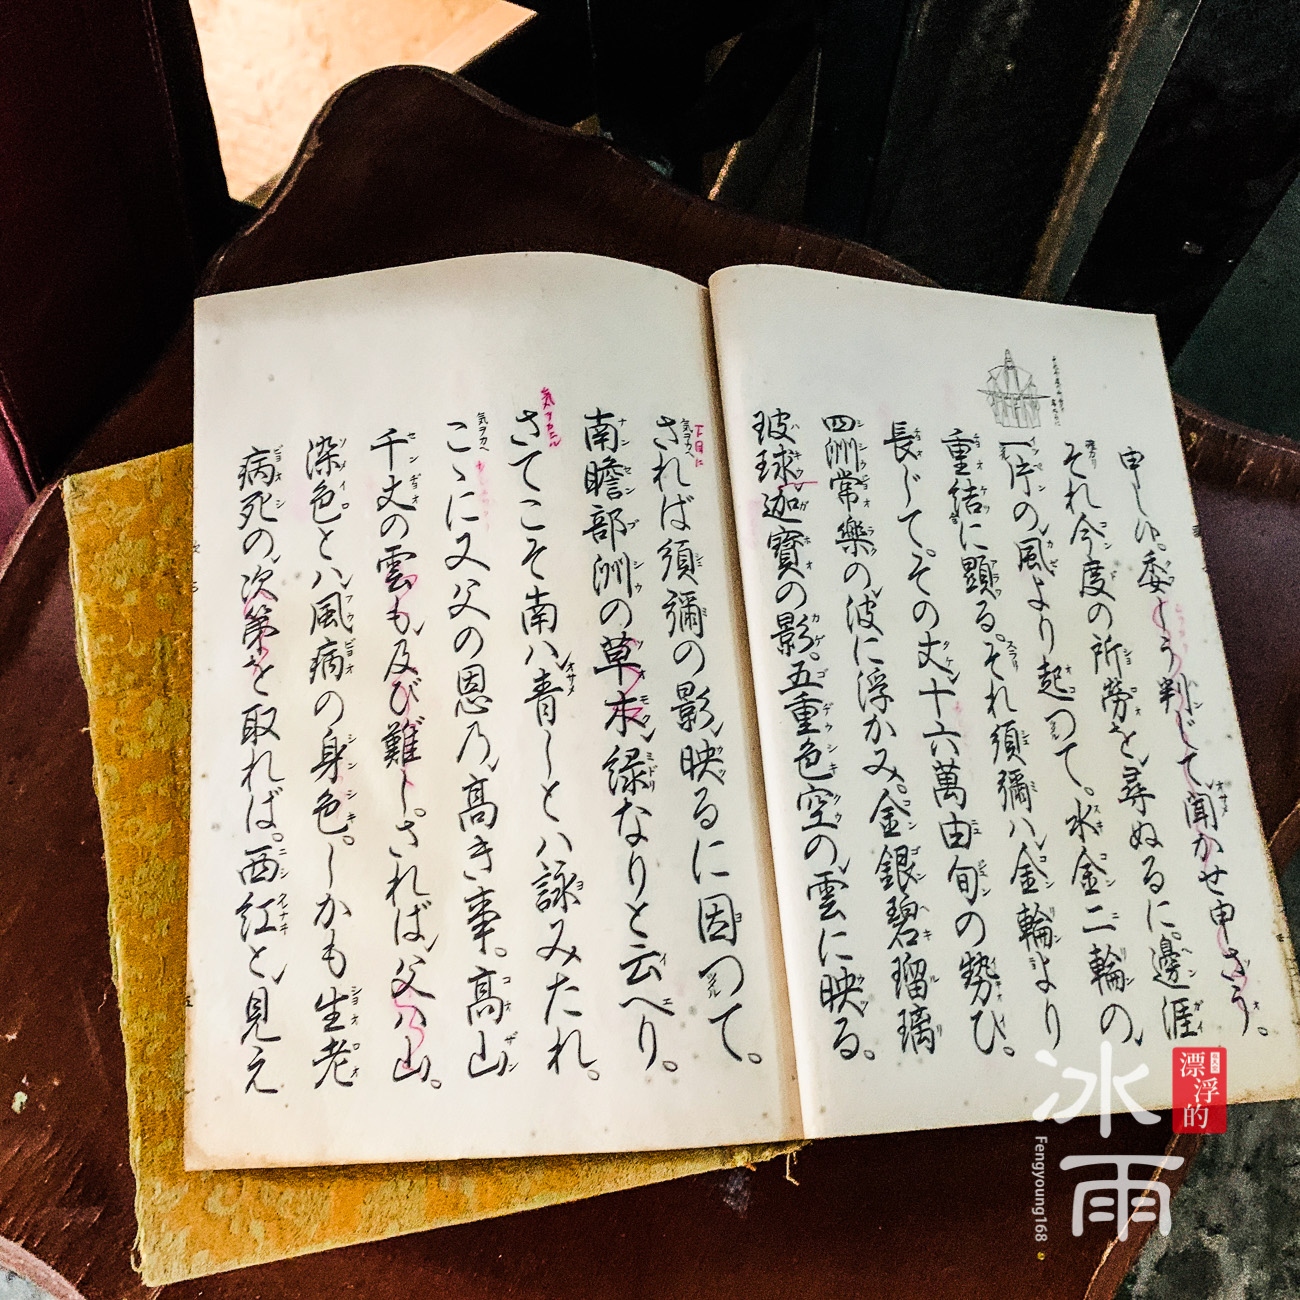 申し候。委しう判じて聞かせ申さう。
それ今度の所勞を、尋ぬるに、邊涯
一片の、風より起つて。水金二輪の、
重結に顕る。それ須彌ハ、金輪より
長じて。その丈、十六萬由旬の勢ひ。
四洲常樂の、波に浮かみ。金銀碧瑠璃
玻球迦寳の影。五重色空の、雲に映る。
されば須彌の影、映るに因つて。
南瞻部洲の草木、緑なりと云へり。
さてこそ南ハ、青しとハ詠みたれ。
こゝに又父の恩乃、高き事。高山
千丈の雲も、及び難し。されば、父ハ山。
染色とハ、風病の身色。しかも生老
病死の、次第を取れば。西紅と、見え
冰雨
漂浮的
Fengyoung168